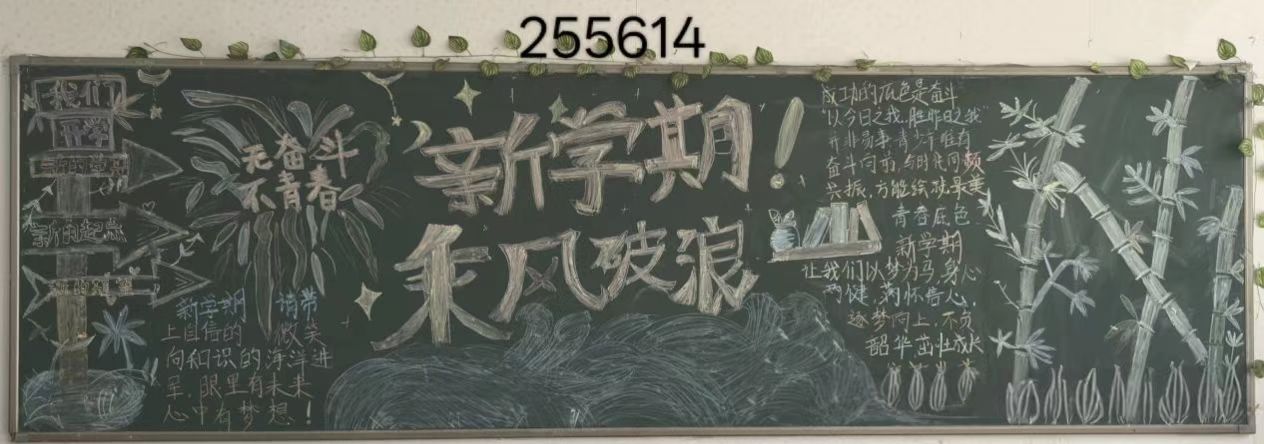 255614
我们
开学
新的起点
无奋斗
不青春
新学期!
乘风破浪
新学期 请带
上自信的 微笑
向知识的海洋进
军,眼里有未来
心中有梦想!
成功的底色是奋斗
"以今日之我,胜昨日之我"
并非易事,青少年唯有
奋斗向前,与时代同频
共振,方能绘就最美
青春底色。
新学期
让我们以梦为马,身心
两健,满怀信心,
逐梦向上,不负
韶华茁壮成长